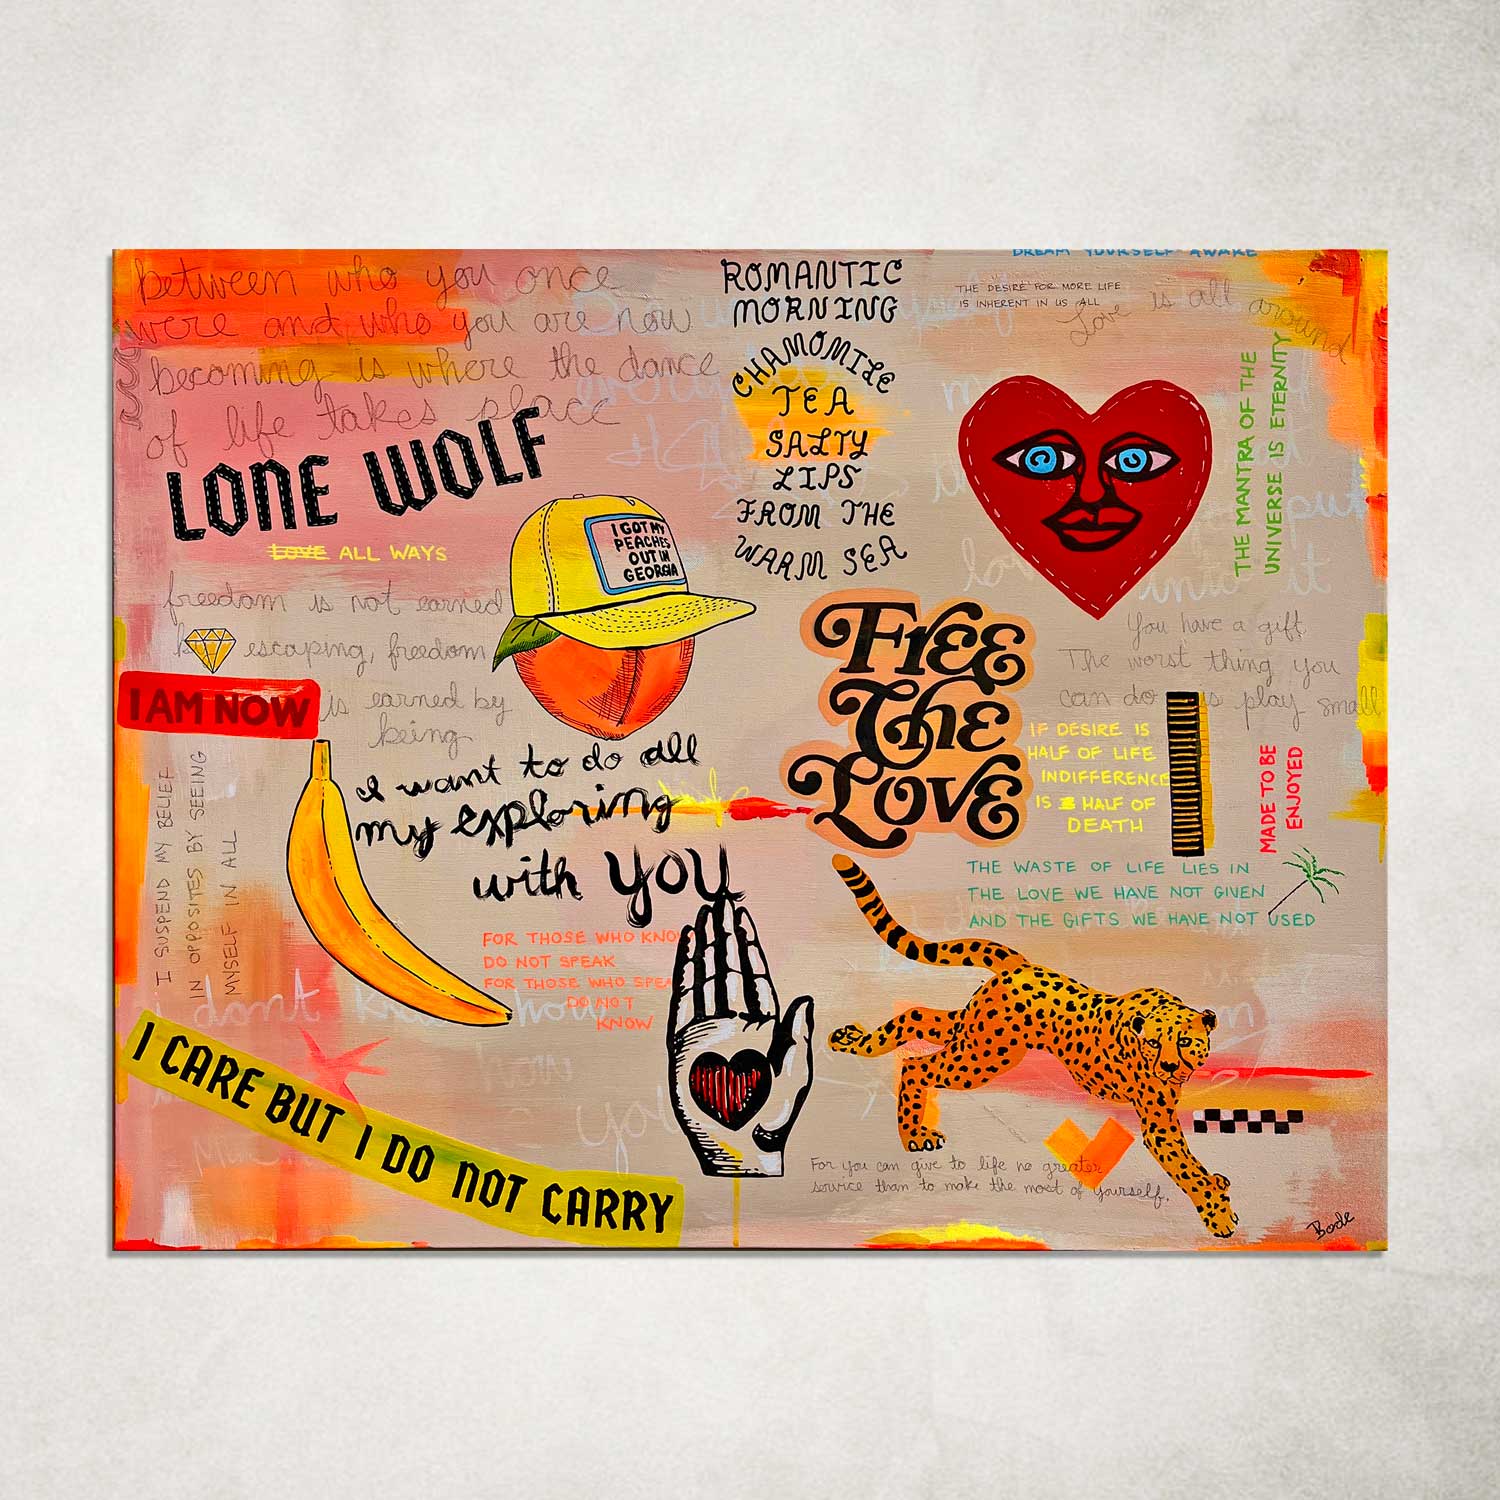 between who you once
were and who you are now
becoming is where the dance
of life takes place
LONE WOLF
LOVE ALL WAYS
ROMANTIC
MORNING
CHAMOMILE
TEA
SALTY
LIPS
FROM THE
WARM SEA
DREAM YOURSELF AWAKE
THE DESIRE FOR MORE LIFE
IS INHERENT IN US ALL
Love is all around
THE MANTRA OF THE
UNIVERSE IS ETERNITY
I GOT MY
PEACHES
OUT IN
GEORGIA
freedom is not earned
escaping, freedom
is earned by
being
I AM NOW
I want to do all
my exploring
with you
FREE
THE
LOVE
You have a gift
The worst thing you
can do is play small
IF DESIRE IS
HALF OF LIFE
INDIFFERENCE
IS HALF OF
DEATH
MADE TO BE
ENJOYED
THE WASTE OF LIFE LIES IN
THE LOVE WE HAVE NOT GIVEN
AND THE GIFTS WE HAVE NOT USED
I SUSPEND MY BELIEF
IN OPPOSITES BY SEEING
MYSELF IN ALL
FOR THOSE WHO KNOW
DO NOT SPEAK
FOR THOSE WHO SPEA
DO NOT
KNOW
i dont know how
you
I CARE BUT I DO NOT CARRY
For you can give to life no greater
service than to make the most of yourself.
Bode